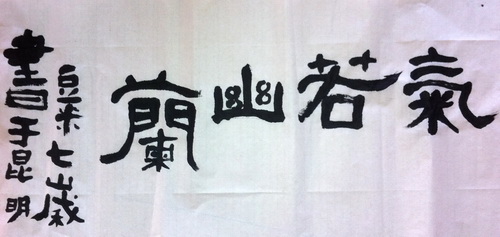 氣若幽蘭
豆米七歲
書于昆明